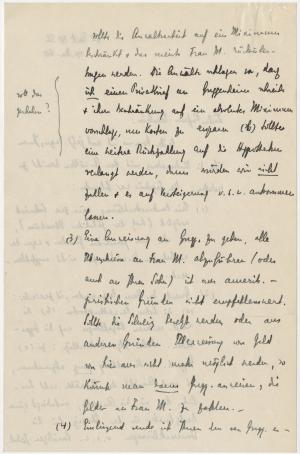 sollte die Anwaltsarbeit auf ein Minimum
beschränkt & das meiste Frau M.
tragen werden. Die Anwälte schlagen vor, dass
ich einen Privatbrief an Guggenheim schreibe
& ihm Beschränkung auf ein absolutes Minimum
vorschlage, um Kosten zu sparen (6) Sollte
eine weitere Rückzahlung auf die Hypotheken
verlangt werden, dann würden wir nicht
zahlen & es auf Versteigerung u.s.w. ankommen
lassen.
soll das
geschehen?
(3) Eine Anweisung an Gugg. zu geben, alle
an Frau M. abzuführen (oder
auch an Ihren Sohn) ist aus amerik.-
juristischen Gründen nicht empfehlenswert.
Sollte die Schweiz besetzt werden oder aus
anderen Gründen Überweisung von Geld
von hier aus nicht mehr möglich werden, so
könnte man dann Gugg. anweisen, die
Gelder an Frau M. zu zahlen. –
(4) Einliegend sende ich Ihnen den von Gugg.